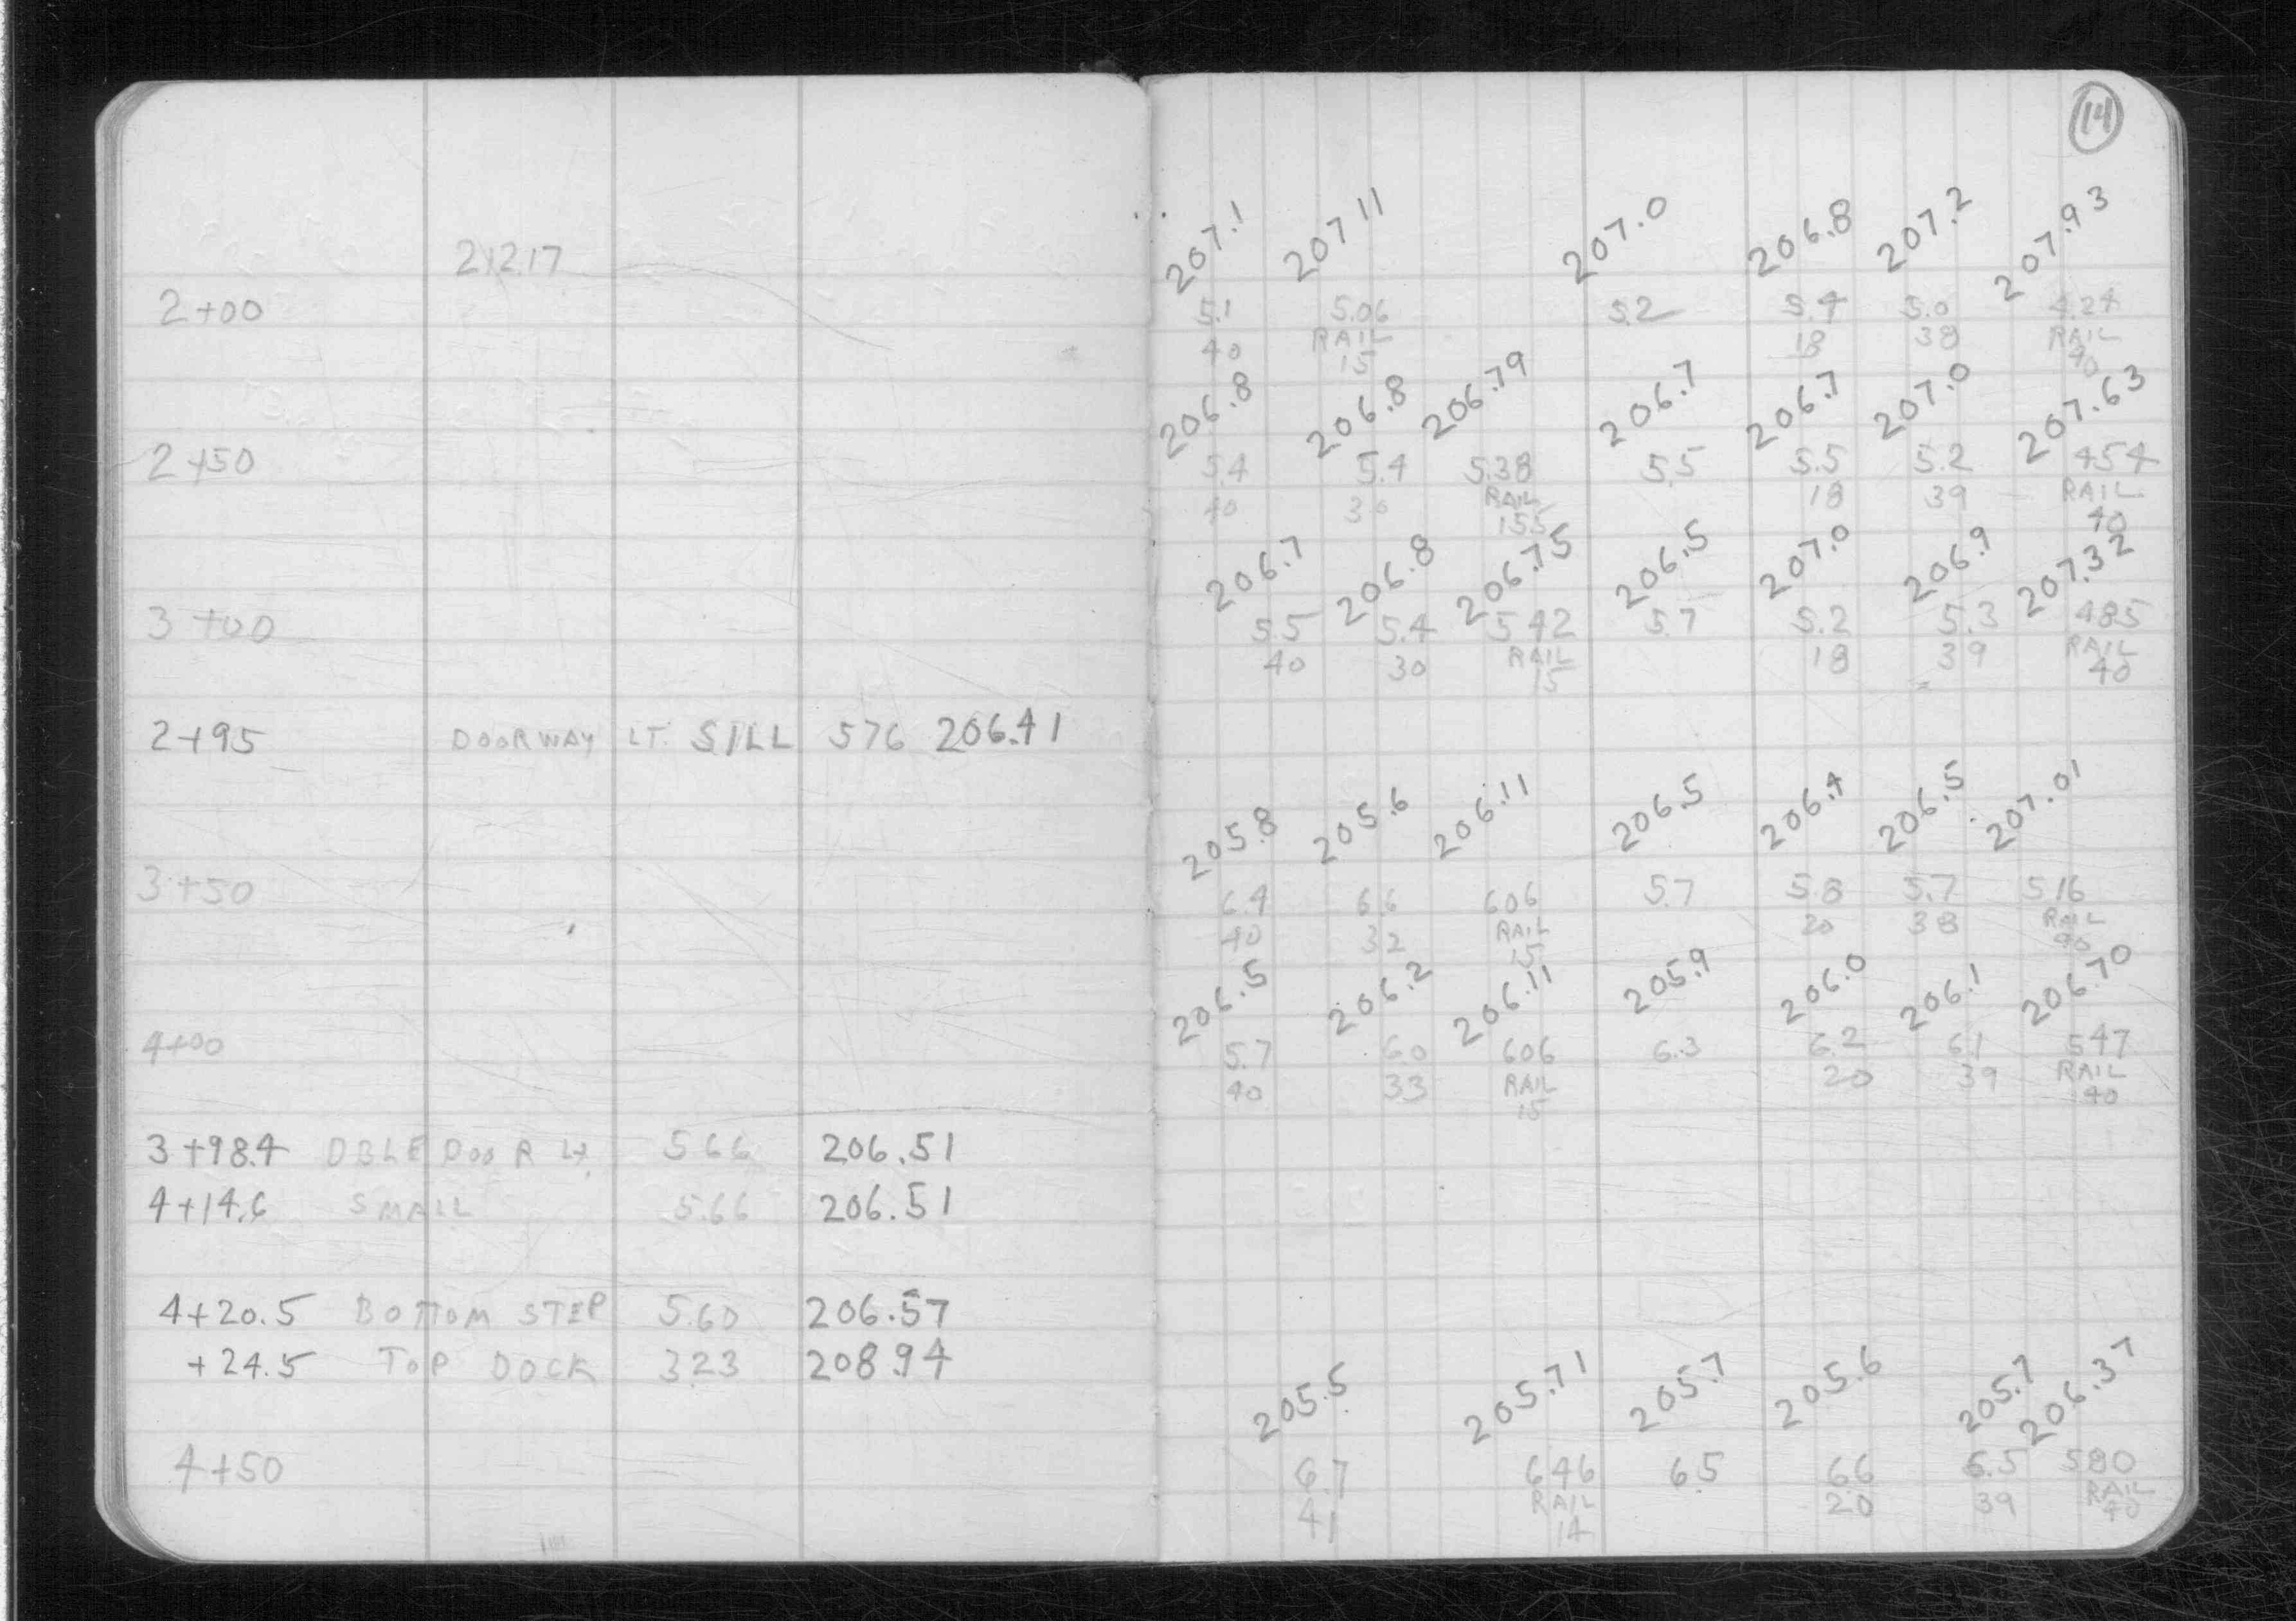 14
212.17
207.1 207.11 207.0 206.8 207.2 207.93
2+00 5.1 5.06 5.2 5.4 5.0 4.24
40 RAIL 18 38 RAIL
15 40
206.8 206.8 206.79 206.7 206.7 207.0 207.63
2+50 5.4 5.4 5.38 5.5 5.5 5.2 454
40 30 RAIL 18 39 RAIL
15.5 40
206.7 206.8 206.75 206.5 207.0 206.9 207.32
3+00 5.5 5.4 542 5.7 5.2 5.3 485
40 30 RAIL 18 39 RAIL
15 40
2+95 DOORWAY LT. SILL 576 206.41
205.8 205.6 206.11 206.5 206.4 206.5 207.01
3+50 6.4 6.6 606 5.7 5.8 5.7 516
40 32 RAIL 20 38 RAIL
15 40
206.5 206.2 206.11 205.9 206.0 206.1 206.70
4+00 5.7 60 606 6.3 6.2 61 547
40 33 RAIL 20 39 RAIL
15 40
3+98.4 DBLE DOOR Lt. 566 206.51
4+14.6 SMALL 5.66 206.51
4+20.5 BOTTOM STEP 5.60 206.57
+24.5 TOP DOCK 323 208.94
205.5 205.71 205.7 205.6 205.7 206.37
4+50 6.7 646 65 66 6.5 580
41 RAIL 20 39 RAIL
14 40